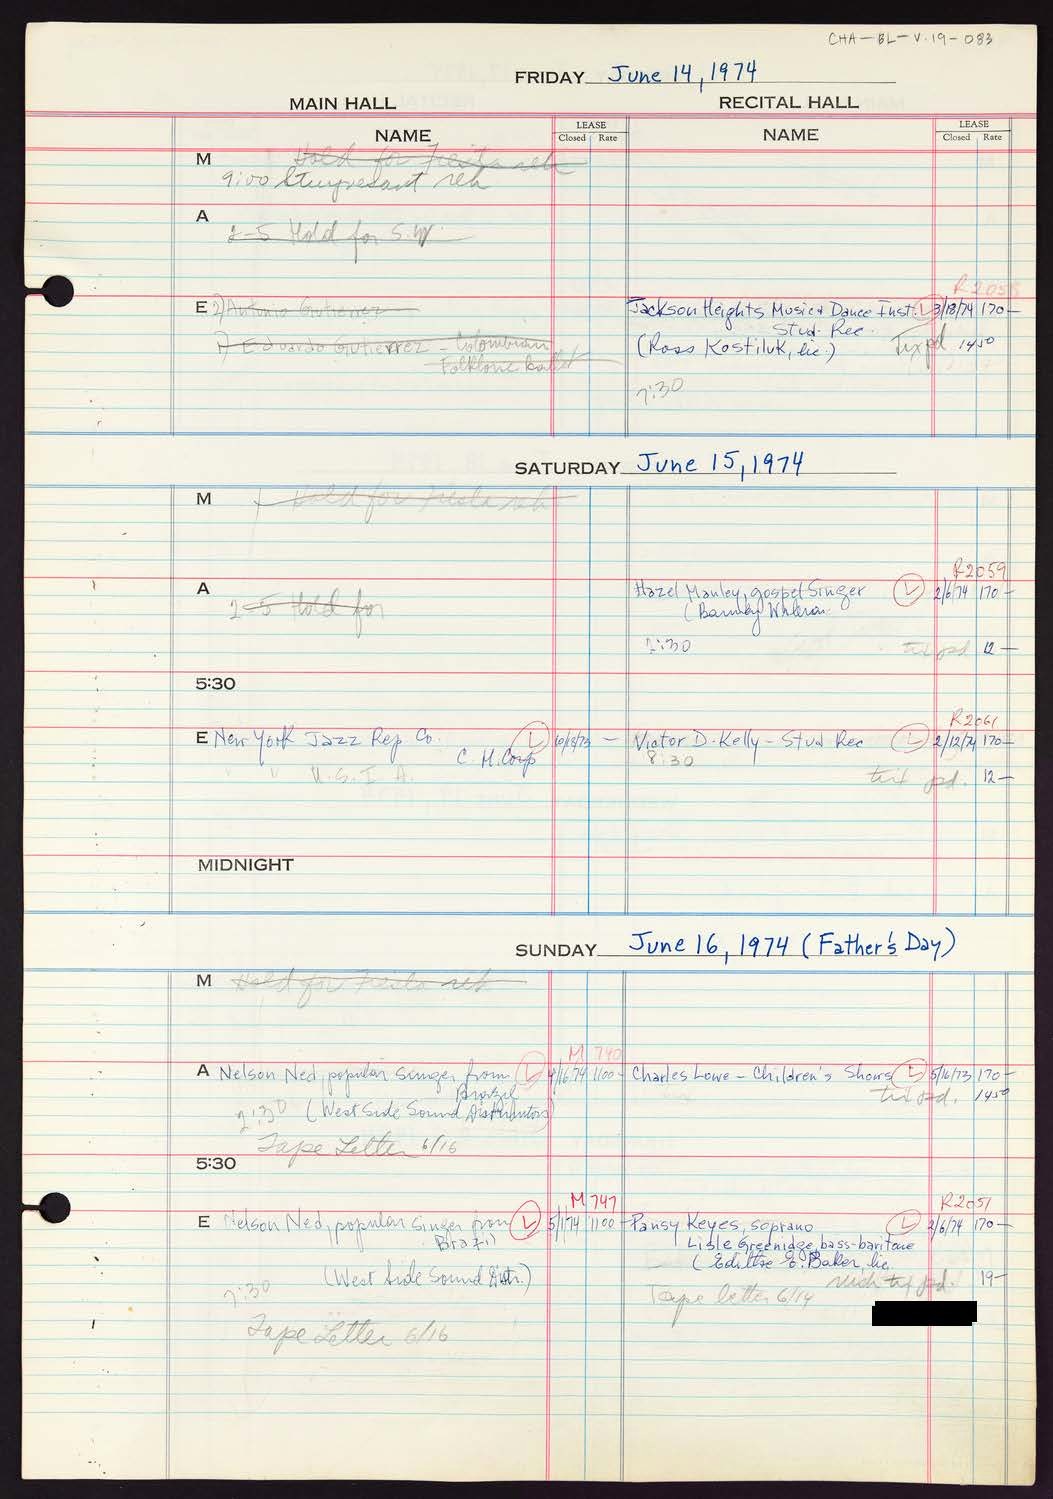 CHA-BL-V.19-083
FRIDAY June 14, 1974
MAIN HALL RECITAL HALL
NAME LEASE Closed Rate NAME LEASE Closed Rate
M Hold for Fiesta reh
9:00 Stuyvesant reh
A
2-5 Hold for S.W.
R2058
E 2) Antonio Gutierrez
Jackson Heights Music & Dance Inst. L 3/18/74 170—
Stud. Rec.
1) Eduardo Gutierrez - Colombian
Folklore Ballet
(Ross Kostiluk, lic.) Tix pd 1450
7:30
SATURDAY June 15, 1974
M Hold for Fiesta reh
R2059
A
Hazel Manley, gospel Singer L 2/6/74 170—
2-5 Hold for
2:30 tix pd 12—
5:30
R2061
E New York Jazz Rep Co. L 10/18/73 —
C.H. Corp
U.S.I.A.
Victor D. Kelly - Stud Rec L 2/12/74 170—
8:30
tix pd. 12—
MIDNIGHT
SUNDAY June 16, 1974 (Father's Day)
M Hold for Fiesta reh
M 740
A Nelson Ned, popular singer from L 4/16/74 1100-
Brazil
2:30 (West Side Sound Distributors)
Tape Letter 6/16
Charles Lowe - Children's Shows L 5/16/73 170—
tix pd. 1450
5:30
M 747 R2051
E Nelson Ned, popular singer from L 5/1/74 1100
Brazil
(West Side Sound Distr.)
7:30
Tape Letter 6/16
Pansy Keyes, soprano L 2/6/74 170—
Lisle Greenidge, bass-baritone
E. Baker, lic.
tix pd. 19—
Tape letter 6/14